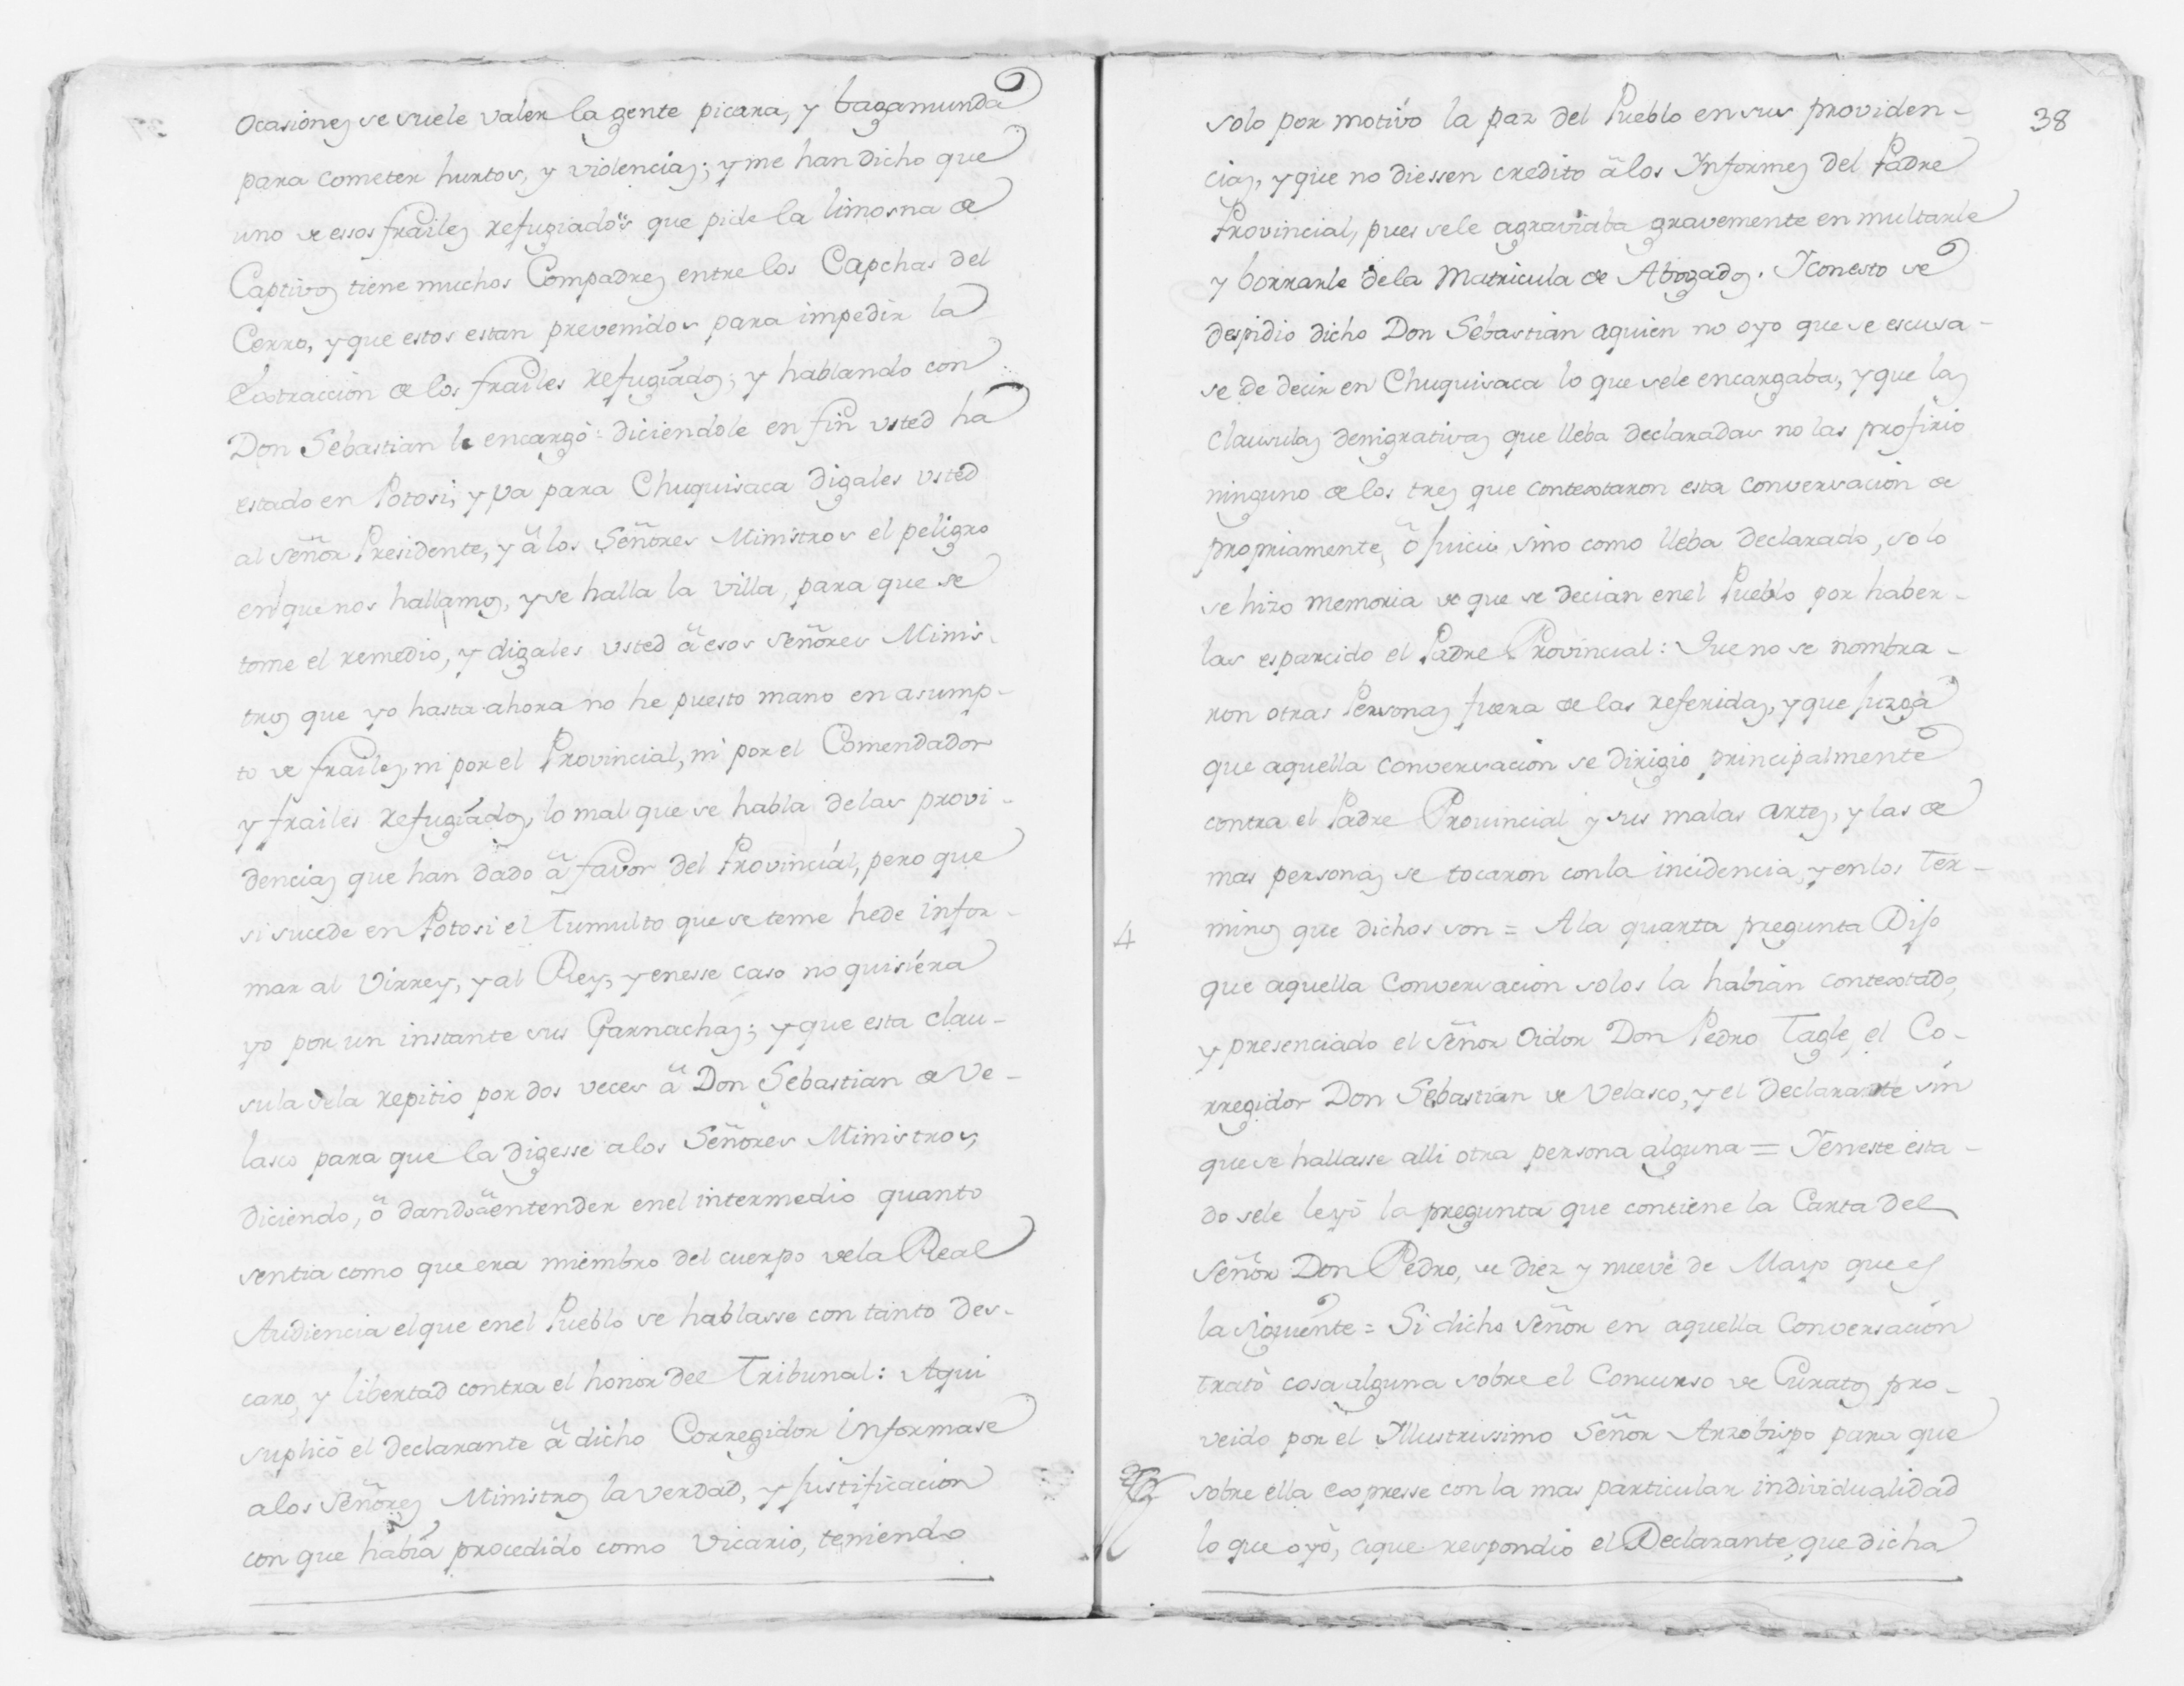 ocasiones se suele valer la gente picara, y bagamunda
para cometer hurtos, y violencias; y me han dicho que
uno de essos frailes refugiados que pide la limosna de
Captivos tiene muchos Compadres entre los Capchas del
Cerro, y que estos estan prevenidos para impedir la
Extraccion de los frailes refugiados; y hablando con
Don Sebastian le encargò: diciendole en fin usted ha
estado en Potosi, y va para Chuquisaca digales usted
al señor Presidente, y â los Señores Ministros el peligro
en que nos hallamos, y se halla la villa, para que se
tome el remedio, y digales usted â esos señores Minis-
tros que yo hasta ahora no he puesto mano en asump-
to de frailes, ni por el Provincial, ni por el Comendador
y frailes refugiados, lo mal que se habla de las provi-
dencias que han dado â favor del Provincial, pero que
si sucede en Potosi el Tumulto que se teme hede infor-
mar al Virrey, y al Rey, y en esse caso no quisiera
yo por un instante sus Garnachas; y que esta clau-
sula se la repitio por dos veces â Don Sebastian de Ve-
lasco para que la digesse a los Señores Ministros,
diciendo, ô dando â entender en el intermedio quanto
sentia como que era miembro del cuerpo de la Real
Audiencia el que en el Pueblo se hablasse con tanto des-
caro, y libertad contra el honor del Tribunal: Aqui
suplicò el declarante â dicho Corregidor informase
a los señores Ministros la verdad, y justificacion
con que habia procedido como Vicario, teniendo
38
solo por motivo la paz del Pueblo en sus providen-
cias, y que no diessen credito â los Informes del Padre
Provincial, pues se le agraviaba gravemente en multarle
y borrarle de la Matricula de Abogados. Y con esto se
despidio dicho Don Sebastian a quien no oyo que se escusa-
se de decir en Chuquisaca lo que se le encargaba, y que las
clausulas denigrativas que lleba declaradas no las profirio
ninguno de los tres que contextaron esta conversacion de
propriamente, ô juicio, sino como lleba declarado, solo
se hizo memoria de que se decian en el Pueblo por haber-
las esparcido el Padre Provincial: Que no se nombra-
ron otras Personas fuera de las referidas, y que juzga
que aquella conversacion se dirigio principalmente
contra el Padre Provincial y sus malas artes, y las de
mas personas se tocaron con la incidencia, y en los ter-
minos que dichos son = A la quarta pregunta Dijo
4
que aquella Conversacion solos la habian contextado,
y presenciado el señor Oidor Don Pedro Tagle, el Co-
rregidor Don Sebastian de Velasco, y el Declarante sin
que se hallasse alli otra persona alguna = Y en este esta-
do se le leyò la pregunta que contiene la Carta del
señor Don Pedro, de diez y nueve de Mayo que es
la siguiente = Si dicho Señor en aquella Conversacion
tratò cosa alguna sobre el Concurso de Curatos pro-
veido por el Illustrissimo Señor Arzobispo para que
sobre ella expresse con la mas particular individualidad
lo que oyò, a que respondio el Declarante, que dicha